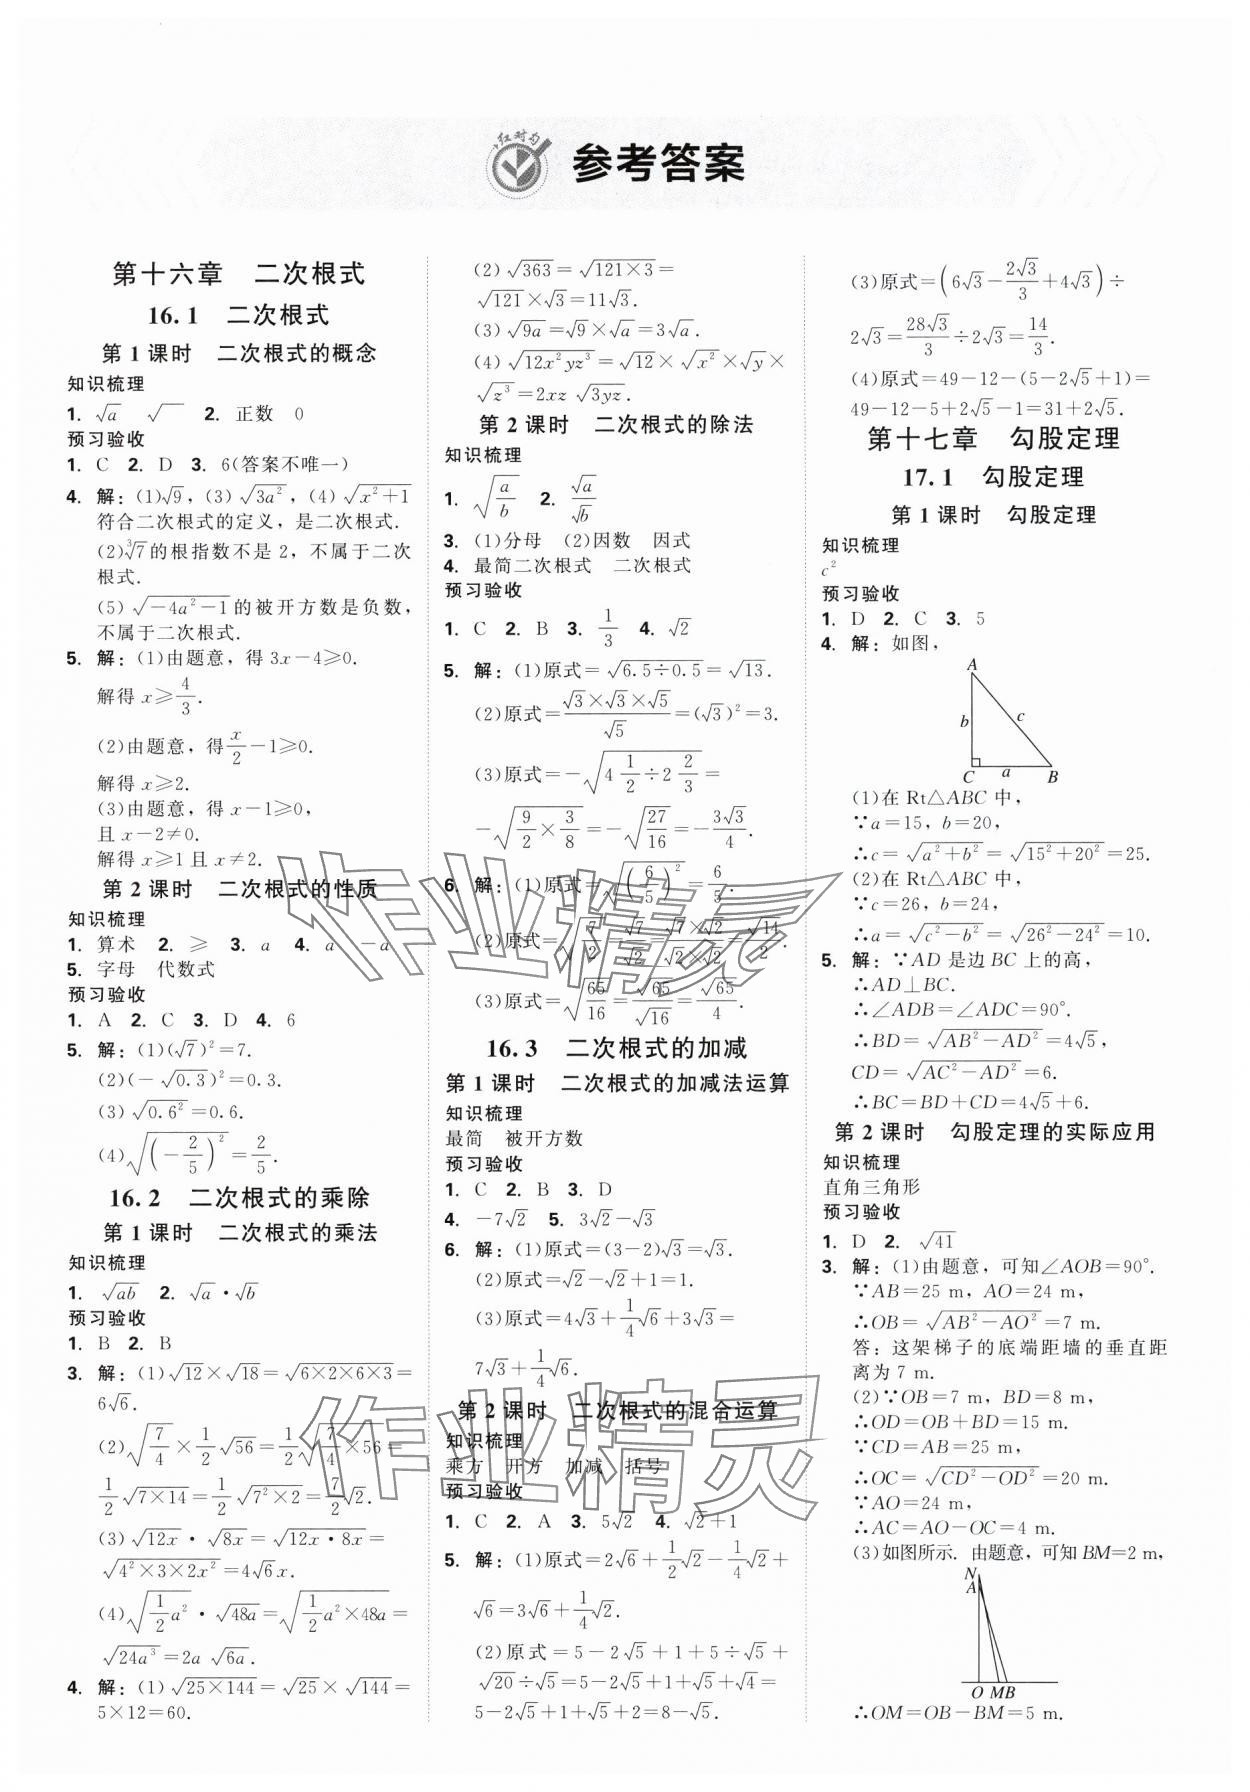 红对勾
参考答案
第十六章　二次根式
16.1　二次根式
第1课时　二次根式的概念
知识梳理
1. √a　√　2. 正数　0
预习验收
1. C　2. D　3. 6(答案不唯一)
4. 解：(1)√9，(3)√(3a²)，(4)√(x²+1)
符合二次根式的定义，是二次根式.
(2)∛7的根指数不是 2，不属于二次
根式.
(5)√(-4a²-1)的被开方数是负数，
不属于二次根式.
5. 解：(1)由题意，得 3x-4≥0.
解得 x≥4/3.
(2)由题意，得x/2-1≥0.
解得 x≥2.
(3)由题意，得 x-1≥0，
且 x-2≠0.
解得 x≥1 且 x≠2.
第2课时　二次根式的性质
知识梳理
1. 算术　2. ≥　3. a　4. a　-a
5. 字母　代数式
预习验收
1. A　2. C　3. D　4. 6
5. 解：(1)(√7)²=7.
(2)(-√0.3)²=0.3.
(3)√(0.6²)=0.6.
(4)√((-2/5)²)=2/5.
16.2　二次根式的乘除
第1课时　二次根式的乘法
知识梳理
1. √(ab)　2. √a·√b
预习验收
1. B　2. B
3. 解：(1)√12×√18=√(6×2×6×3)=
6√6.
(2)√(7/4)×1/2√56=1/2√(7/4×56)=
1/2√(7×14)=1/2√(7²×2)=7/2√2.
(3)√(12x)·√(8x)=√(12x·8x)=
√(4²×3×2x²)=4√6x.
(4)√(1/2a²)·√(48a)=√(1/2a²×48a)=
√(24a³)=2a√(6a).
4. 解：(1)√(25×144)=√25×√144=
5×12=60.
(2)√363=√(121×3)=
√121×√3=11√3.
(3)√(9a)=√9×√a=3√a.
(4)√(12x²yz³)=√12×√(x²)×√y×
√(z³)=2xz√(3yz).
第2课时　二次根式的除法
知识梳理
1. √(a/b)　2. √a/√b
3. (1)分母　(2)因数　因式
4. 最简二次根式　二次根式
预习验收
1. C　2. B　3. 1/3　4. √2
5. 解：(1)原式=√(6.5÷0.5)=√13.
(2)原式=(√3×√3×√5)/√5=(√3)²=3.
(3)原式=-√(4 1/2÷2 2/3)=
-√(9/2×3/8)=-√(27/16)=-3√3/4.
6. 解：(1)原式=√((6/5)²)=6/5.
(2)原式=√7/√2=(√7×√2)/(√2×√2)=√14/2.
(3)原式=√(65/16)=√65/√16=√65/4.
16.3　二次根式的加减
第1课时　二次根式的加减法运算
知识梳理
最简　被开方数
预习验收
1. C　2. B　3. D
4. -7√2　5. 3√2-√3
6. 解：(1)原式=(3-2)√3=√3.
(2)原式=√2-√2+1=1.
(3)原式=4√3+1/4√6+3√3=
7√3+1/4√6.
第2课时　二次根式的混合运算
知识梳理
乘方　开方　加减　括号
预习验收
1. C　2. A　3. 5√2　4. √2+1
5. 解：(1)原式=2√6+1/2√2-1/4√2+
√6=3√6+1/4√2.
(2)原式=5-2√5+1+5÷√5+
√20÷√5=5-2√5+1+√5+√4=
5-2√5+1+√5+2=8-√5.
(3)原式=(6√3-2√3/3+4√3)÷
2√3=28√3/3÷2√3=14/3.
(4)原式=49-12-(5-2√5+1)=
49-12-5+2√5-1=31+2√5.
第十七章　勾股定理
17.1　勾股定理
第1课时　勾股定理
知识梳理
c²
预习验收
1. D　2. C　3. 5
4. 解：如图，
A
b
c
C
a
B
(1)在 Rt△ABC 中，
∵a=15，b=20，
∴c=√(a²+b²)=√(15²+20²)=25.
(2)在 Rt△ABC 中，
∵c=26，b=24，
∴a=√(c²-b²)=√(26²-24²)=10.
5. 解：∵AD 是边 BC 上的高，
∴AD⊥BC.
∴∠ADB=∠ADC=90°.
∴BD=√(AB²-AD²)=4√5，
CD=√(AC²-AD²)=6.
∴BC=BD+CD=4√5+6.
第2课时　勾股定理的实际应用
知识梳理
直角三角形
预习验收
1. D　2. √41
3. 解：(1)由题意，可知∠AOB=90°.
∵AB=25 m，AO=24 m，
∴OB=√(AB²-AO²)=7 m.
答：这架梯子的底端距墙的垂直距
离为 7 m.
(2)∵OB=7 m，BD=8 m，
∴OD=OB+BD=15 m.
∵CD=AB=25 m，
∴OC=√(CD²-OD²)=20 m.
∵AO=24 m，
∴AC=AO-OC=4 m.
(3)如图所示. 由题意，可知 BM=2 m，
N
A
O MB
∴OM=OB-BM=5 m.
作业精灵
作业精灵